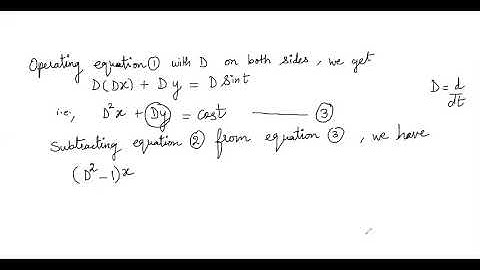 Operating equation ① with D on both sides, we get
D(Dx) + Dy = D sint
D = d/dt
i.e., D²x + Dy = cost —— ③
Subtracting equation ② from equation ③, we have
(D² - 1)x